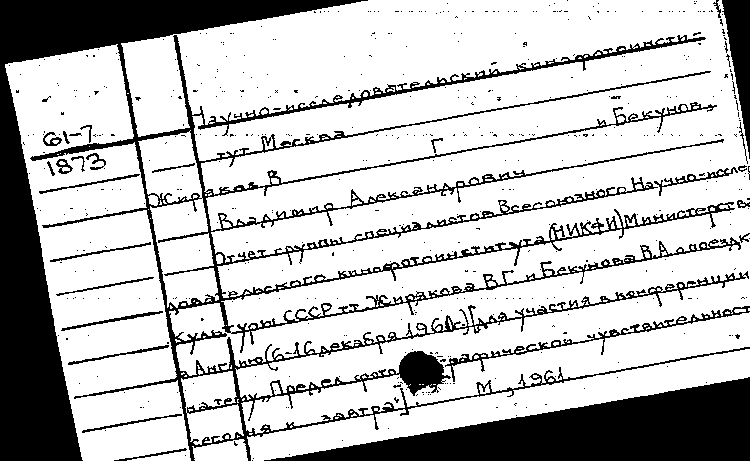 Научно-исследовательский кинофотоинсти-
61-7
1873
тут. Москва
Жиряков, В Г и Бекунов,
Владимир Александрович
Отчет группы специалистов Всесоюзного Научно-иссле
довательского кинофотоинститута (НИКФИ) Министерства
Культуры СССР тт. Жирякова В.Г. и Бекунова В.А о поездк
в Англию (6-16 декабря 1960г.) [для участия в конференции
на тему „Предел фото графической чувствительност
сегодня и завтра"]. М., 1961